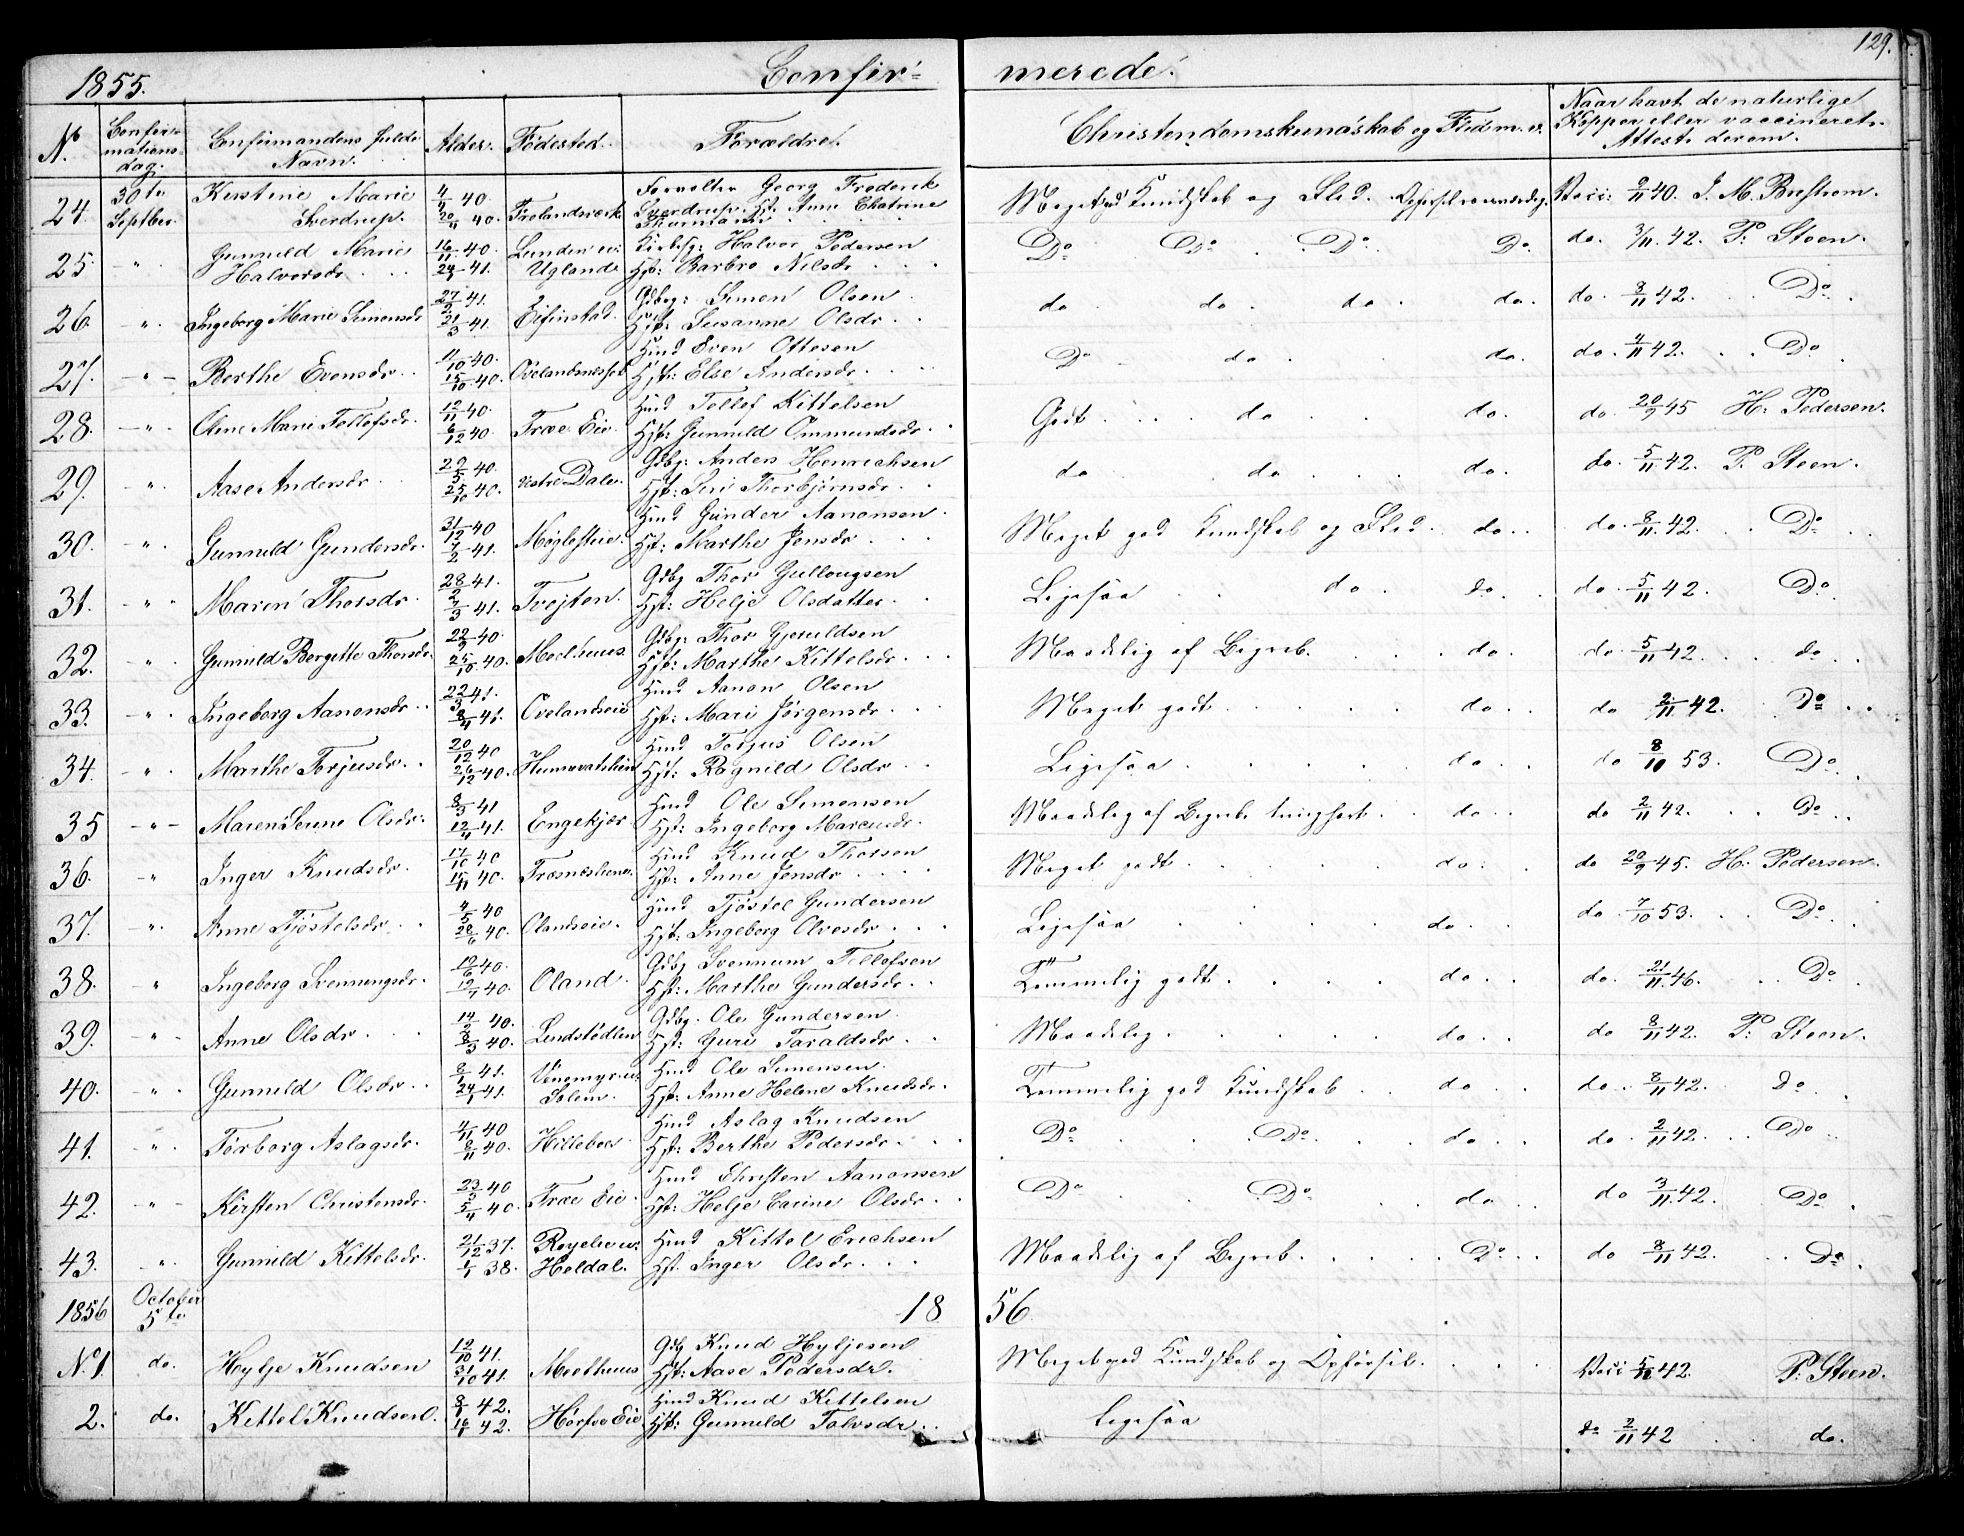 129.
1855. Confir- merede.
No. Confirmationsdag. Confirmandens fulde Navn. Alder. Fødested. Forældre. Christendomskundskab og Flid m. v. Naar havt de naturlige Kopper eller vaccineret. Attest derom.
24. 30te Septber Kirstine Marie Sverdrup. 4/4 40 20/4 40. Frolandsværk Forvalter Georg Frederik Sverdrup. Hst. Anne Chatrine Meget god Kundskab og Flid. Vacc: 9/11 40. J. M. Brestrom.
25. " Gunnild Marie Halvorsdr. 16/11 40 24/1 41. Lunden u: Ugland Halvor Pedersen Hst: Barbro Nilsdr Do Do Do Do do. 3/11. 42. P: Steen.
26. " Ingeborg Marie Simonsdr 27/2 41. 21/3 41. Eifinstad. Gdbrg: Simon Olsen Hst: Susanne Olsdr do do do do. do. 8/11 42. Do
27. " Berthe Evensdr. 11/10 40. 15/10 40. Ovelandsnesset Hmd Even Ottesen Hst: Else Andersdr. Do do do. do. 4/11 42. Do
28. " Olene Marie Tellefsdr. 12/11 40. 6/12 40. Træe Eie Hmd Tellef Kittelsen Hst: Gunnild Ommundsdr. Godt do do. do. 20/9 45 H: Pedersen.
29. " Aase Andersdr 29/5 40. 25/10 40. vestre Dale. Gdbg: Anders Henrichsen Hst: Siri Thorbjørnsdr. do do. do. do. 5/11 42. P. Steen.
30. " Gunnild Gundersdr. 31/12 40 7/2 41. Møglestue. Hmd Gunder Aanonsen Hst: Marthe Jensdr Meget god Kundskab og Flid. do. do. 8/11 42. Do
31. " Maren Thorsdr 28/2 41. 7/3 41. Tvejten. Gdbg Thor Gullougsen Hst: Helje Olsdatter. Ligesaa do do. do. 5/11 42. Do
32. " Gunnild Bergitte Thorsdr. 22/9 40. 25/10 40. Moelhuus. Gdbg: Thor Gjeruldsen Hst: Marthe Kittelsdr. Maadelig af Begreb. do. do. 5/11 42. do.
33. " Ingeborg Aanonsdr 22/3 41. 8/4 41. Ovelandseie Hmd Aanon Olsen Hst: Mari Jörgensdr. Meget godt do. do 2/11 42. Do
34. " Marthe Torjusdr. 20/12 40 26/12 40. Hmd Torjus Olsen Hst: Ragnild Olsdr Ligesaa. do. do 8/10 53. Do
35 " Maren Serine Olsdr: 8/3 41 12/4 41. Engekjær Hmd Ole Simonsen Hst: Ingeborg Marcusdr. Maadelig af Begreb do. do 2/11 42. Do
36. " Inger Knudsdr. 17/10 40 15/11 40. Hmd Knud Thorsen Hst: Anne Jensdr Meget godt do. do 20/9 45. H: Pedersen.
37. " Anne Tjöstelsdr. 4/5 40 28/6 40. Olandseie. Hmd Tjöstel Gundersen Hst: Ingeborg Olvesdr. Ligesaa do. do. 7/10 53. Do
38. " Ingeborg Svennungsdr. 12/6 40. 12/7 40. Oland. Gdbg Svennum Tellefsen Hst: Marthe Gundersdr. Temmelig godt. do. do. 21/11 46. Do
39. " Anne Olsdr 14/2 40. 8/3 40. Lindstødlen Gdbg. Ole Gundersen Hst: Guri Taraldsdr Maadelig. do. do 8/11 42. P: Steen.
40. " Gunnild Olsdr. 8/1 41. 24/1 41. Venemyr u: Solem. Hmd Ole Simensen Hst: Anne Helene Knudsdr. Temmelig god Kundskab. do do. 8/11 42. Do
41. " Torborg Aslagsdr. 4/11 40 8/11 40. Hilleboe Hmd Aslag Knudsen Hst: Berthe Pedersdr. Do Do do do. 2/11 42. Do
42. " Kirsten Christensdr. 23/3 40 5/4 40. Træe Eie. Hmd Christen Aanonsen Hst: Helje Carine Olsdr. Do Do do. do 3/11 42. Do
43. " Gunnild Kittelsdr. 21/12 37. 1/1 38. Røyelie u: Heldal. Hmd Kittel Erichsen Hst. Inger Olsdr. Maadelig af Begreb. Do do 8/11 42. Do
1856 October 5te 1856
No 1. do. Hylje Knudsen 12/10 41. 31/10 41. Moelhuus Gdbg Knud Hyljesen Hst: Aase Pedersdr. Meget god Kundskab og Opførsel. Vacc 5/11 42. P: Steen.
2. do. Kittel Knudsen. 8/1 42. 16/1 42. Hørfoe Eie Hmd Knud Kittelsen Hst: Gunnild Talvsdr. Ligesaa do 2/11 42 do.